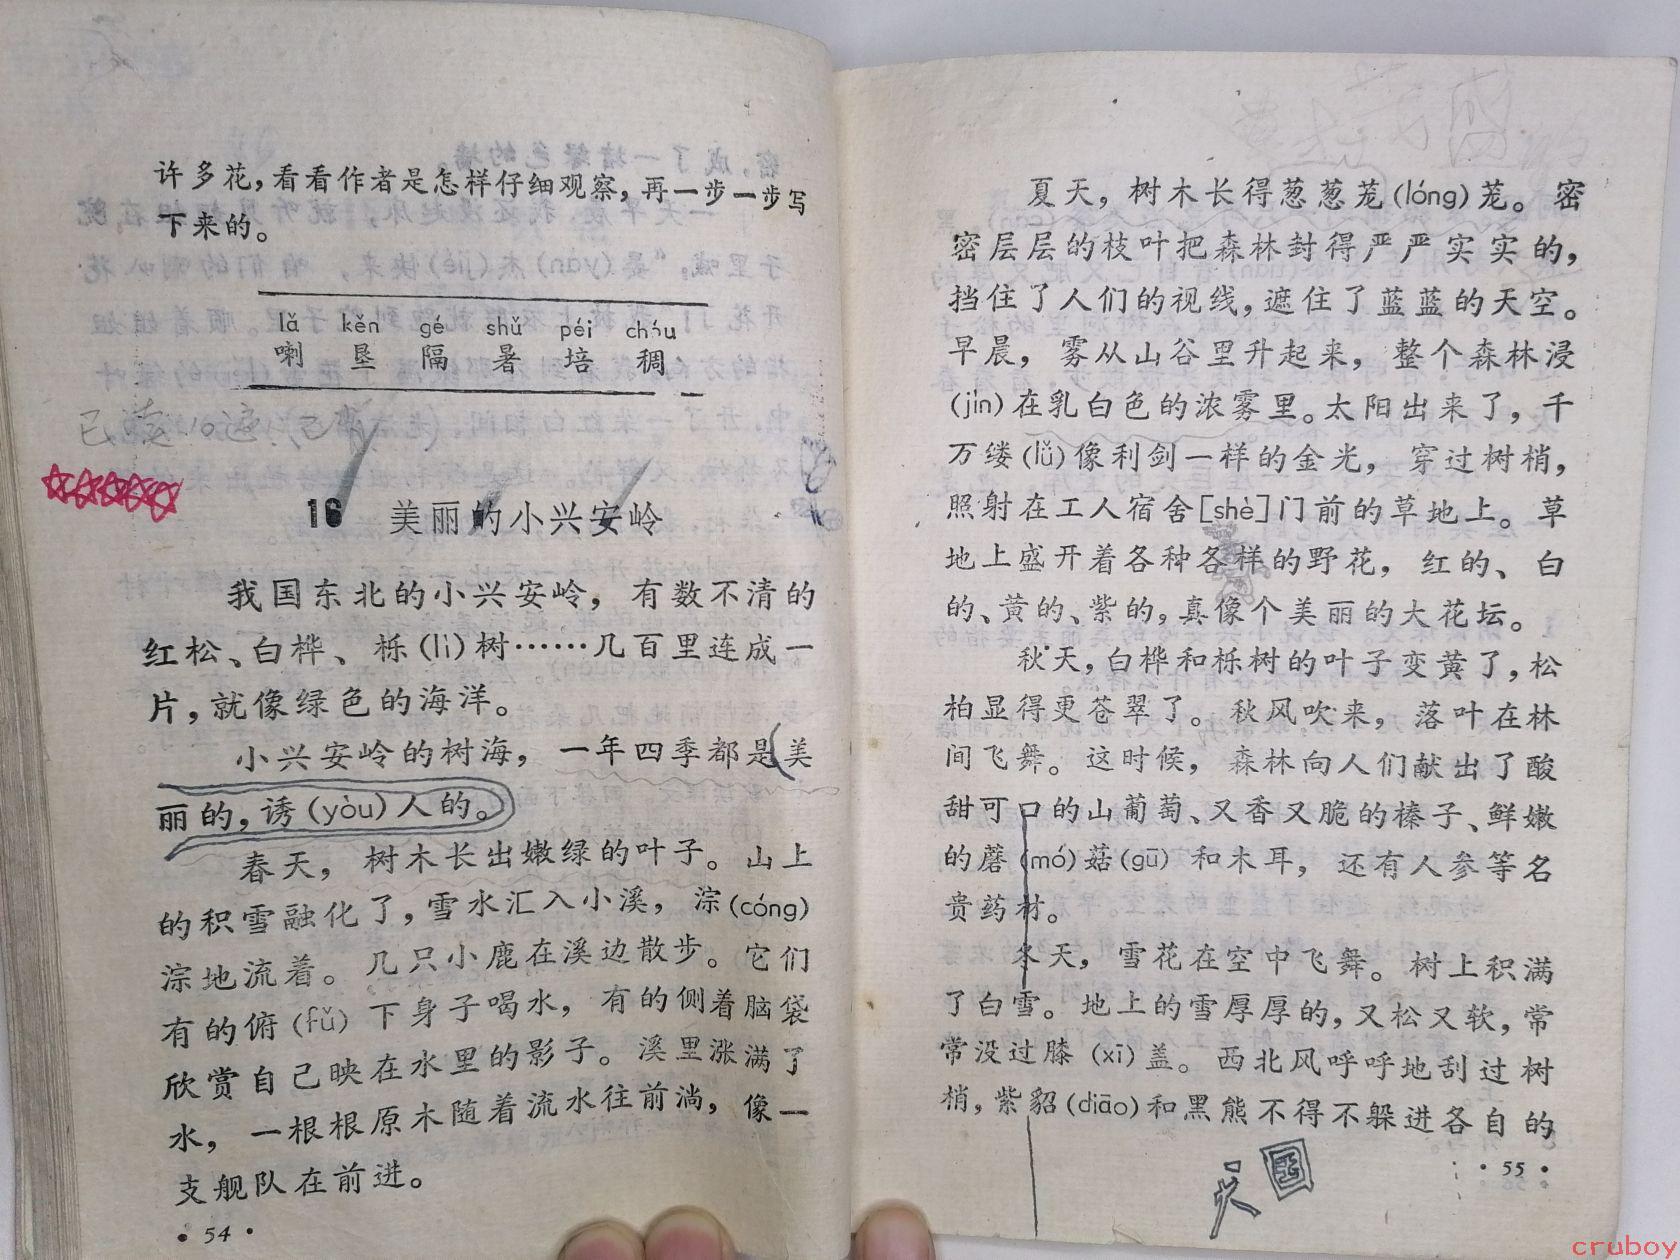 许多花，看看作者是怎样仔细观察，再一步一步写
下来的。
lǎ kěn gé shǔ péi chóu
喇 垦 隔 暑 培 稠
已读10遍
16 美丽的小兴安岭
我国东北的小兴安岭，有数不清的
红松、白桦、栎(lì)树……几百里连成一
片，就像绿色的海洋。
小兴安岭的树海，一年四季都是美
丽的，诱(yòu)人的。
春天，树木长出嫩绿的叶子。山上
的积雪融化了，雪水汇入小溪，淙(cóng)
淙地流着。几只小鹿在溪边散步。它们
有的俯(fǔ)下身子喝水，有的侧着脑袋
欣赏自己映在水里的影子。溪里涨满了
水，一根根原木随着流水往前淌，像一
支舰队在前进。
• 54 •
夏天，树木长得葱葱茏(lóng)茏。密
密层层的枝叶把森林封得严严实实的，
挡住了人们的视线，遮住了蓝蓝的天空。
早晨，雾从山谷里升起来，整个森林浸
(jìn)在乳白色的浓雾里。太阳出来了，千
万缕(lǚ)像利剑一样的金光，穿过树梢，
照射在工人宿舍[shè]门前的草地上。草
地上盛开着各种各样的野花，红的、白
的、黄的、紫的，真像个美丽的大花坛。
秋天，白桦和栎树的叶子变黄了，松
柏显得更苍翠了。秋风吹来，落叶在林
间飞舞。这时候，森林向人们献出了酸
甜可口的山葡萄、又香又脆的榛子、鲜嫩
的蘑(mó)菇(gū)和木耳，还有人参等名
贵药材。
冬天，雪花在空中飞舞。树上积满
了白雪。地上的雪厚厚的，又松又软，常
常没过膝(xī)盖。西北风呼呼地刮过树
梢，紫貂(diāo)和黑熊不得不躲进各自的
• 55 •
cruboy